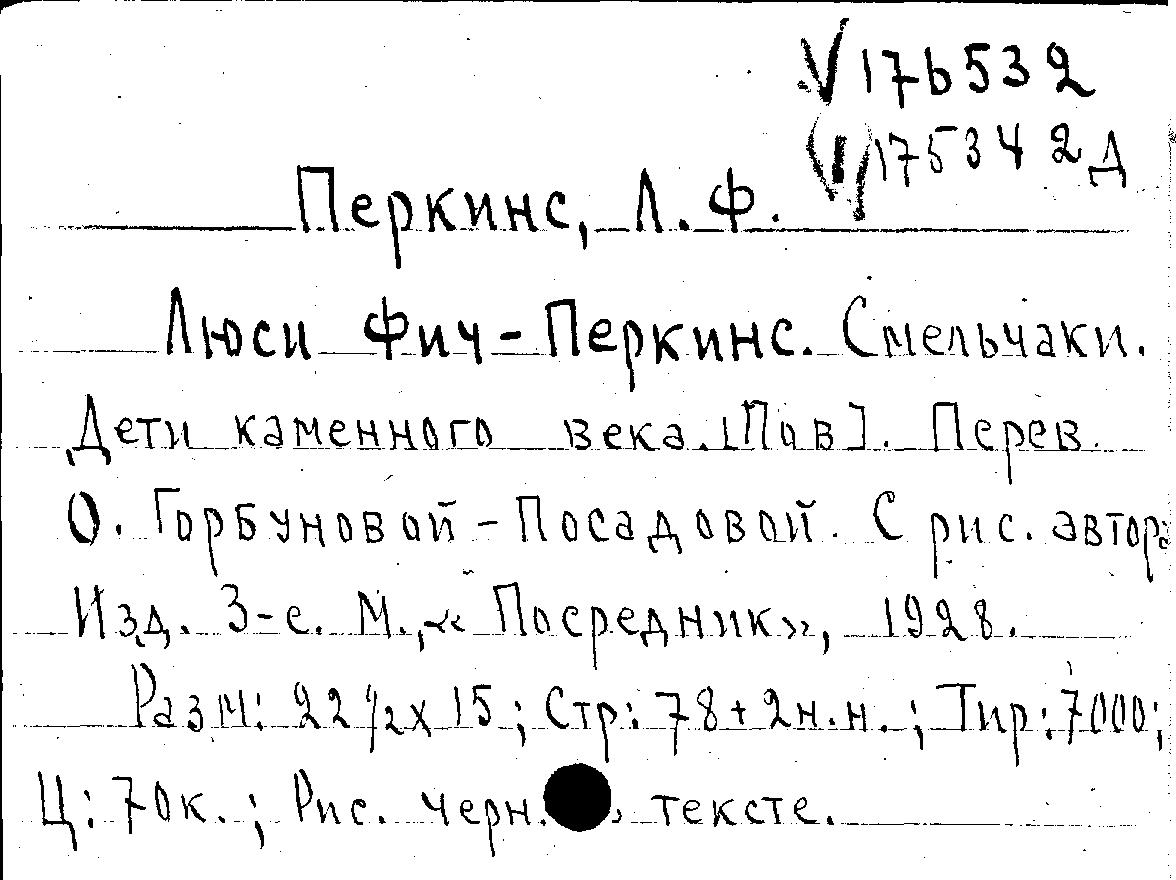 V 176532
175342 Д
Перкинс, Л. Ф.
Люси Фич-Перкинс. Смельчаки.
Дети каменного века. [Пов]. Перев.
О. Горбуновой-Посадовой. С рис. автора
Изд. 3-е. М., «Посредник», 1928.
Разм: 22 1/2 х 15; Стр: 78 + 2 н.н.; Тир: 7000;
Ц: 70 к.; Рис. черн. тексте.